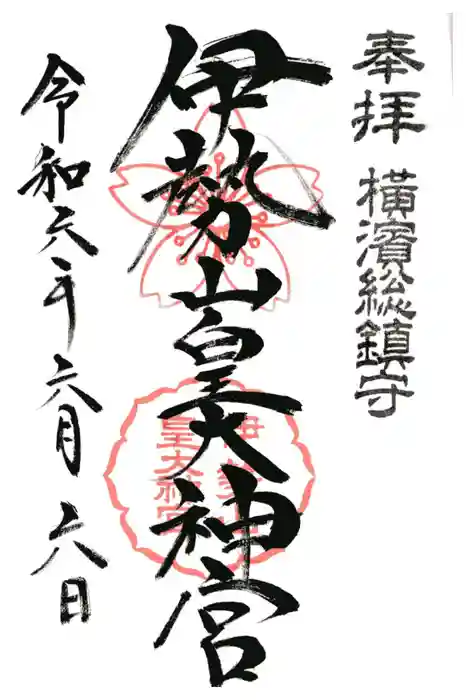 奉拝 横濱総鎮守
伊勢山皇大神宮
令和六年六月六日